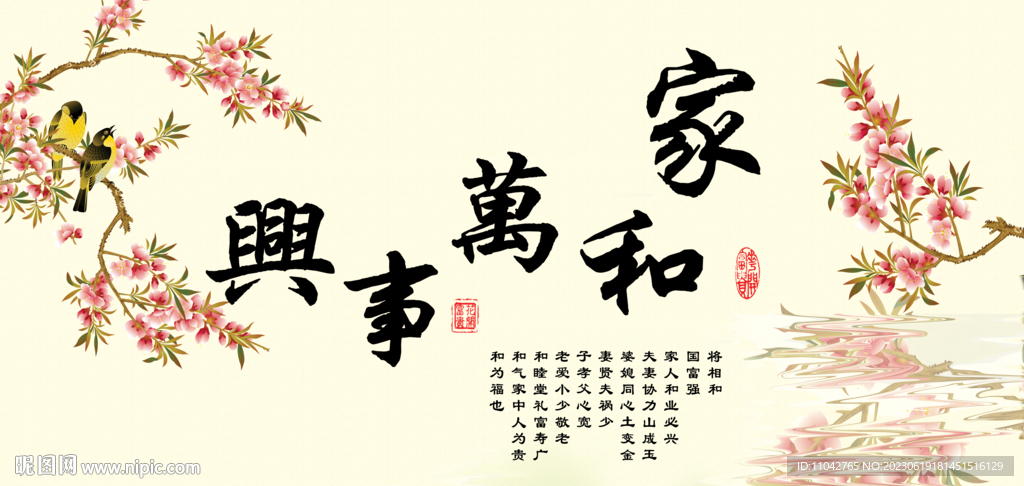 家和萬事興
花開富貴
将相和
国富强
家人和业必兴
夫妻协力山成玉
婆媳同心土变金
妻贤夫祸少
子孝父心宽
老爱小少敬老
和睦堂礼富寿广
和气家中人为贵
和为福也
昵图网 www.nipic.com
ID:11042765 NO:20230619181451516129